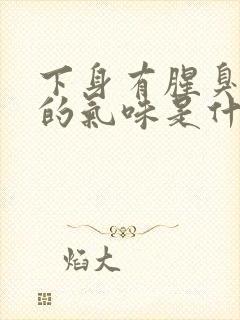 下身有腥臭
的氣味是什
焰大